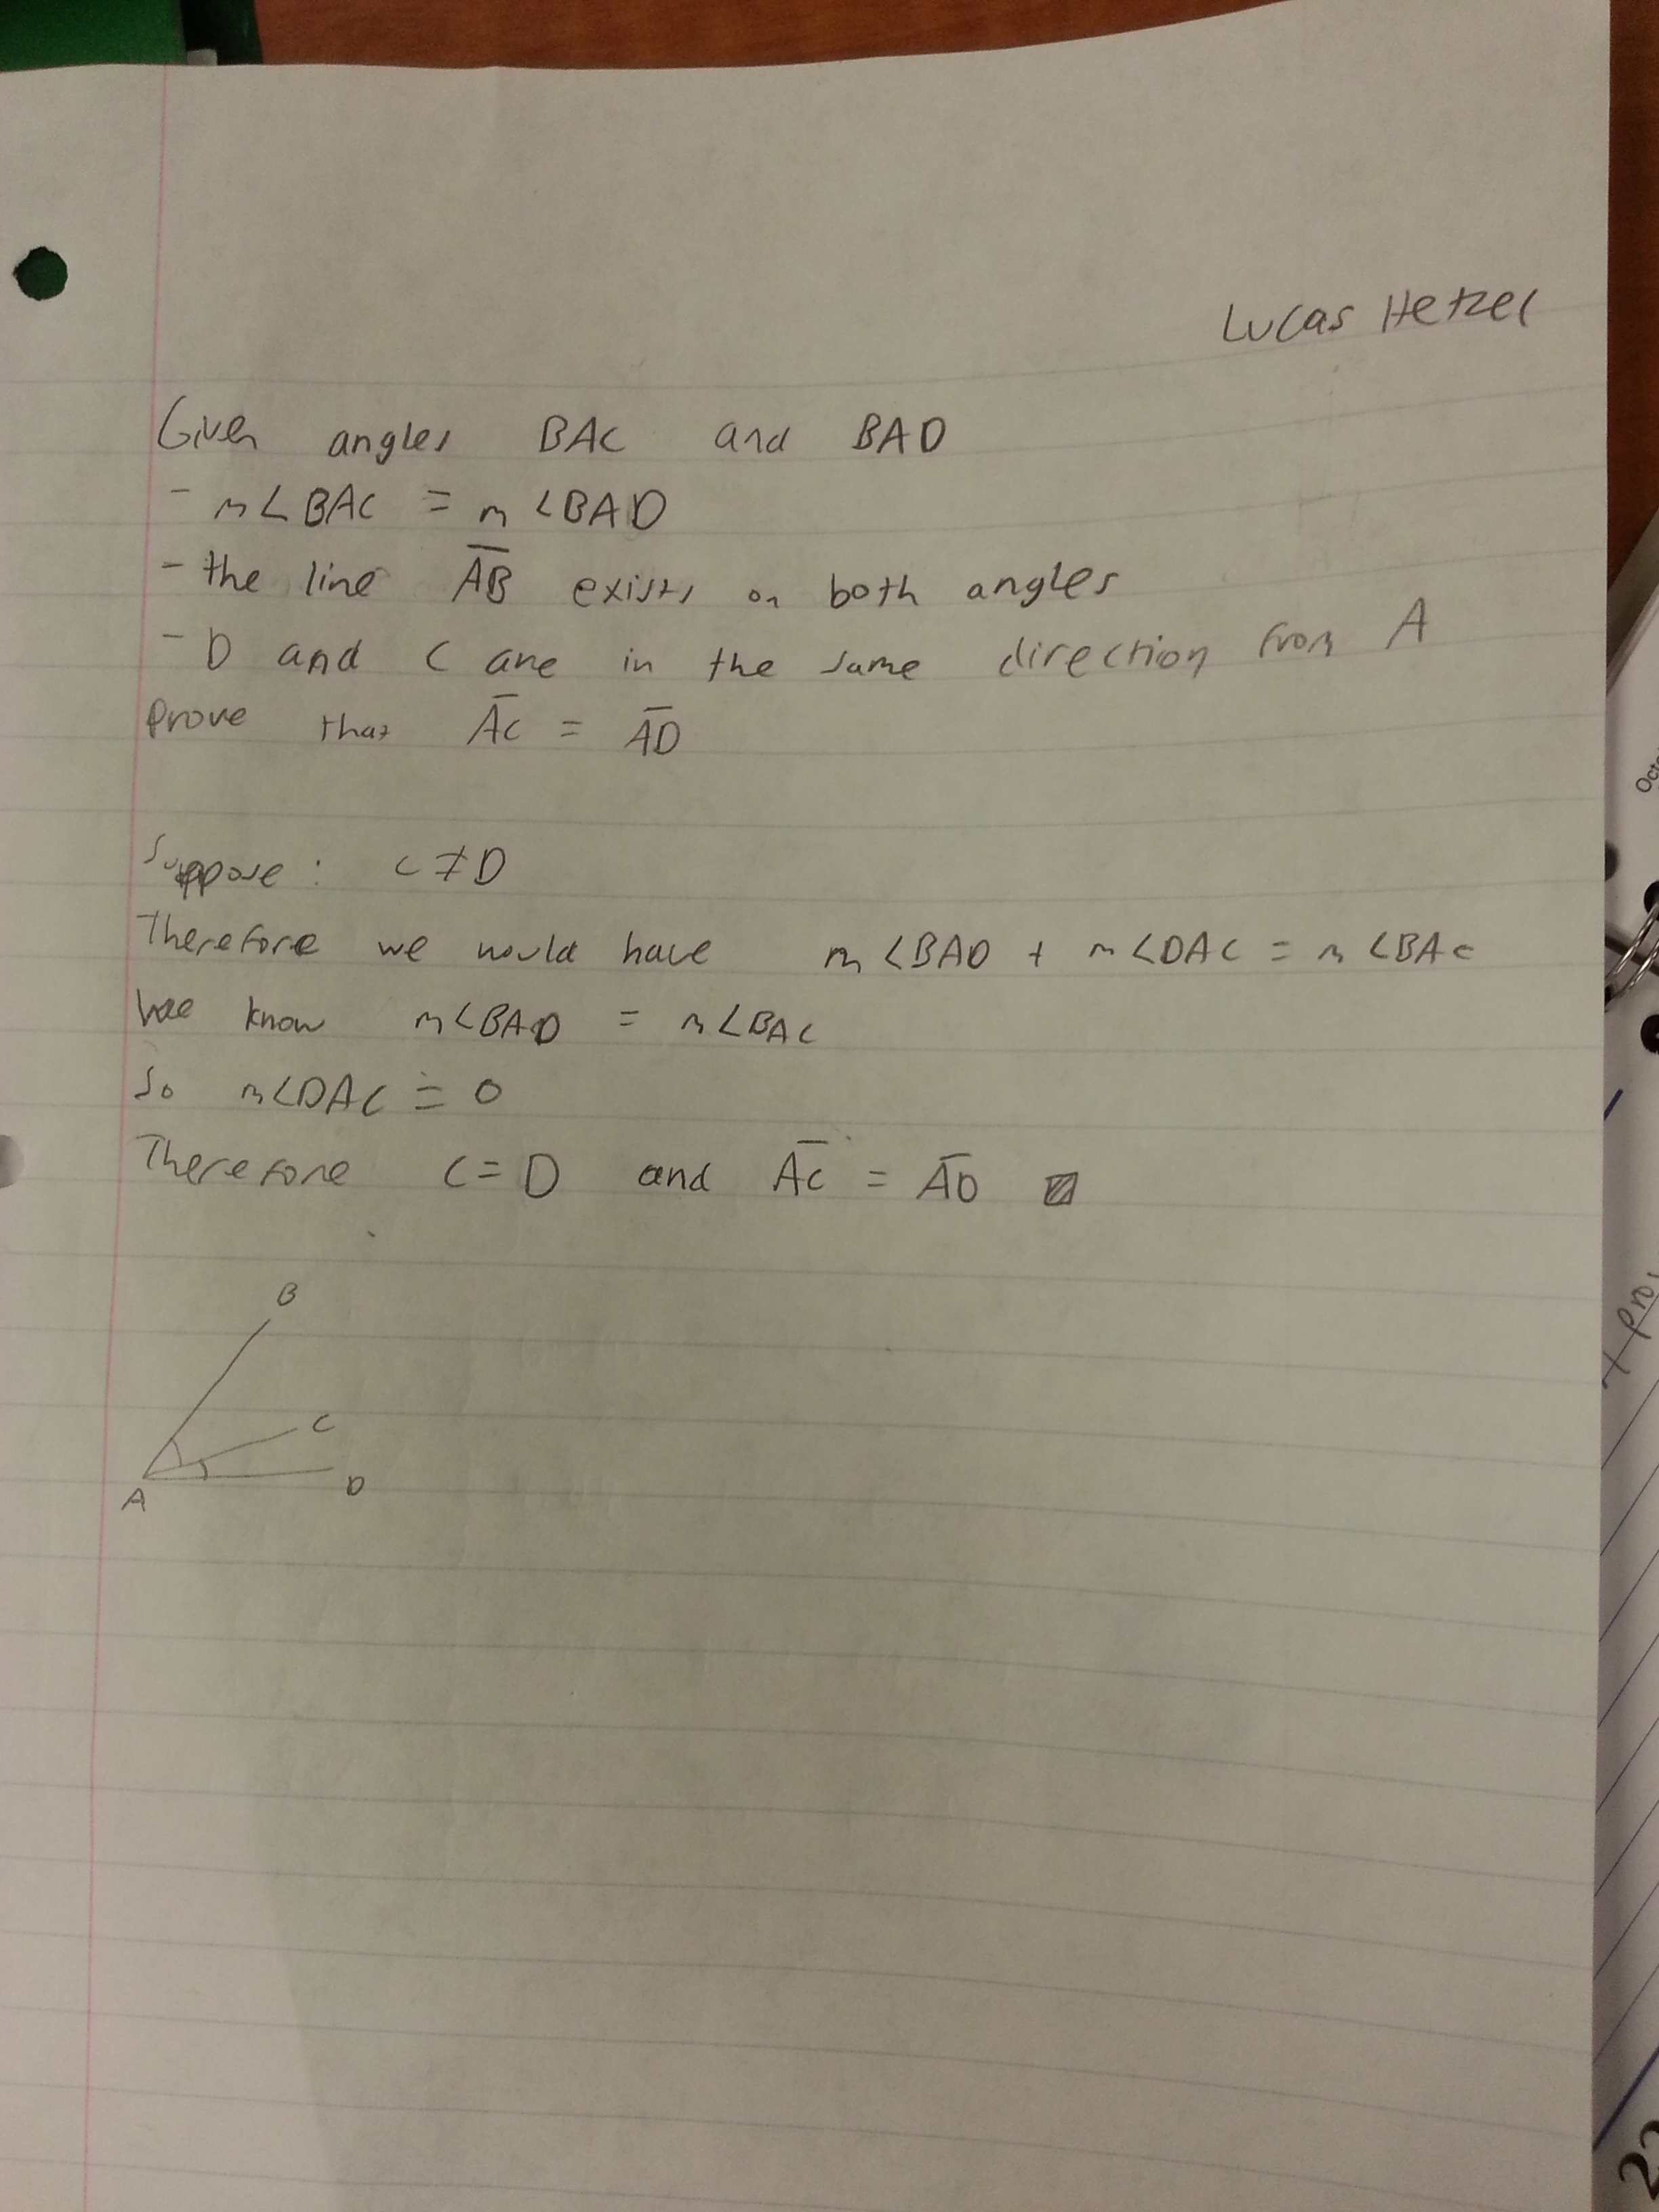 Lucas Hetzel
Given angles BAC and BAD
- m∠BAC = m∠BAD
- the line A̅B̅ exists on both angles
- D and C are in the same direction from A
Prove that A̅C̅ = A̅D̅
Suppose: C ≠ D
Therefore we would have m∠BAD + m∠DAC = m∠BAC
We know m∠BAD = m∠BAC
So m∠DAC = 0
Therefore C = D and A̅C̅ = A̅D̅
B
C
D
A
Oct
+ pro
22